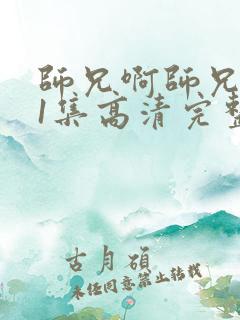 師兄啊師兄
1集高清完整
古月碩
未经同意禁止转载